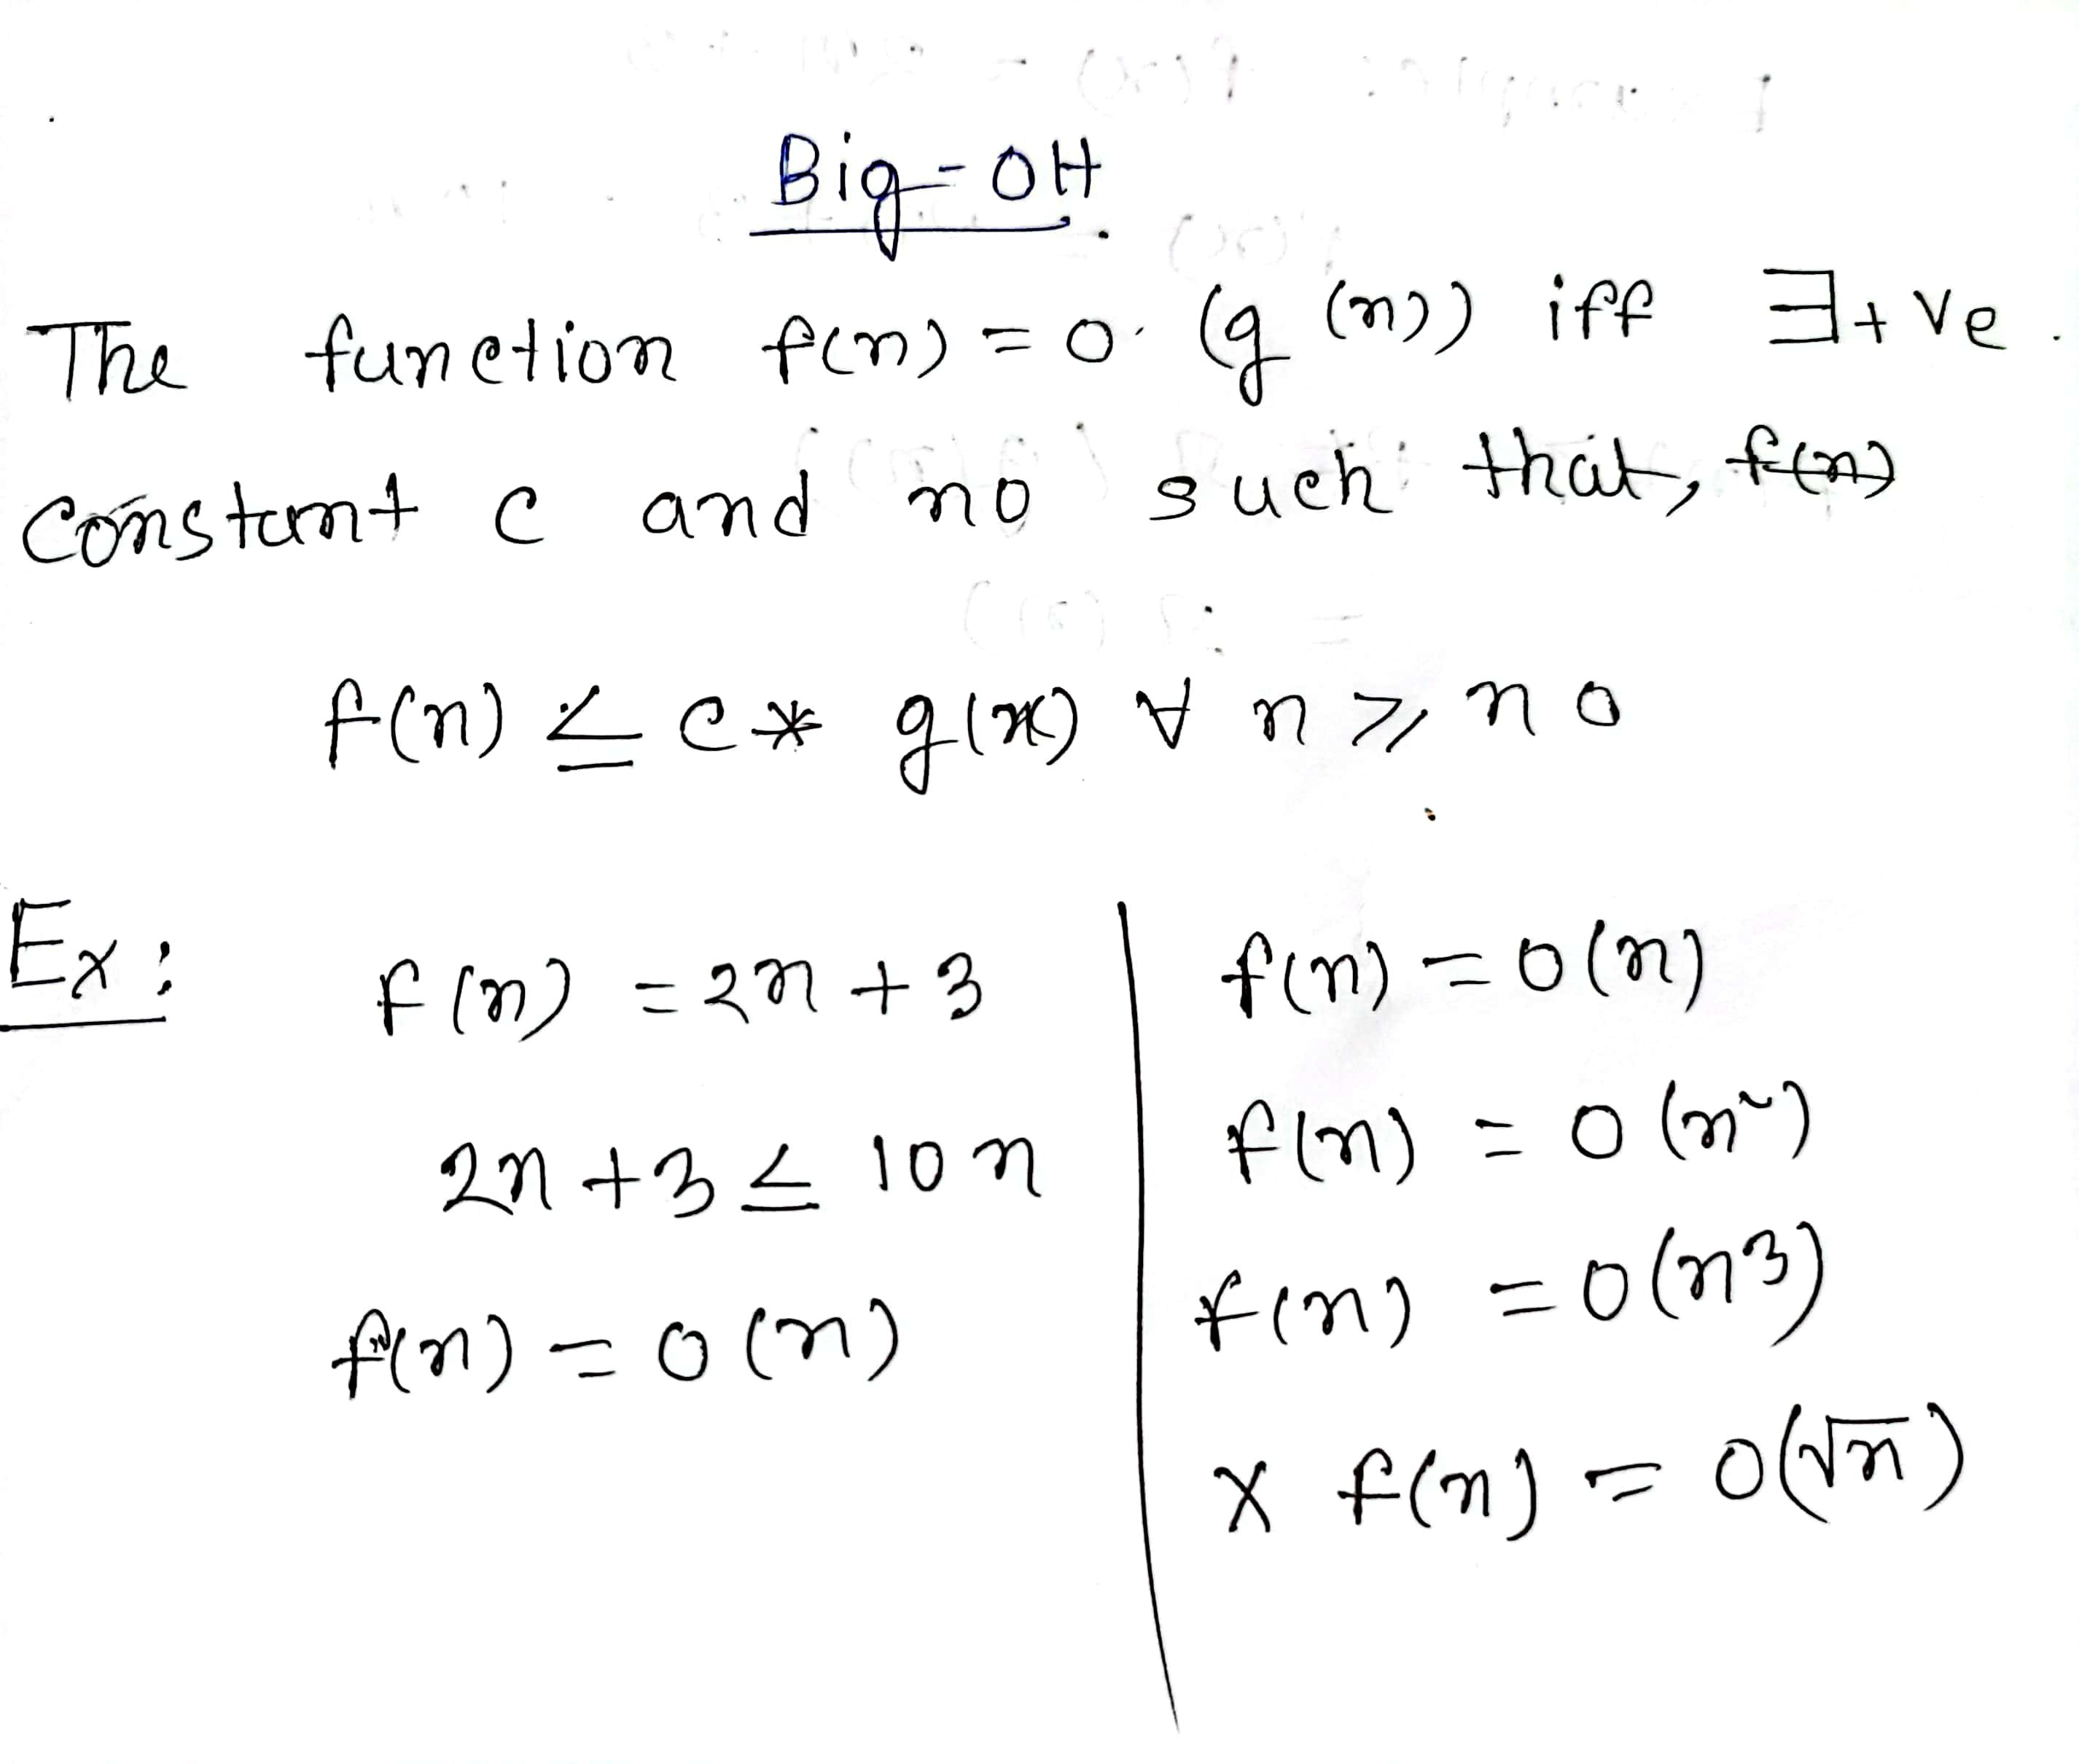 Big-OH
The function f(n) = O (g (n)) iff ∃ +ve
constant c and no such that, f(n)
f(n) ≤ c * g(n) ∀ n ≥ no
Ex: f(n) = 2n + 3
2n + 3 ≤ 10n
f(n) = O(n)
f(n) = O(n)
f(n) = O(n²)
f(n) = O(n³)
x f(n) = O(√n)